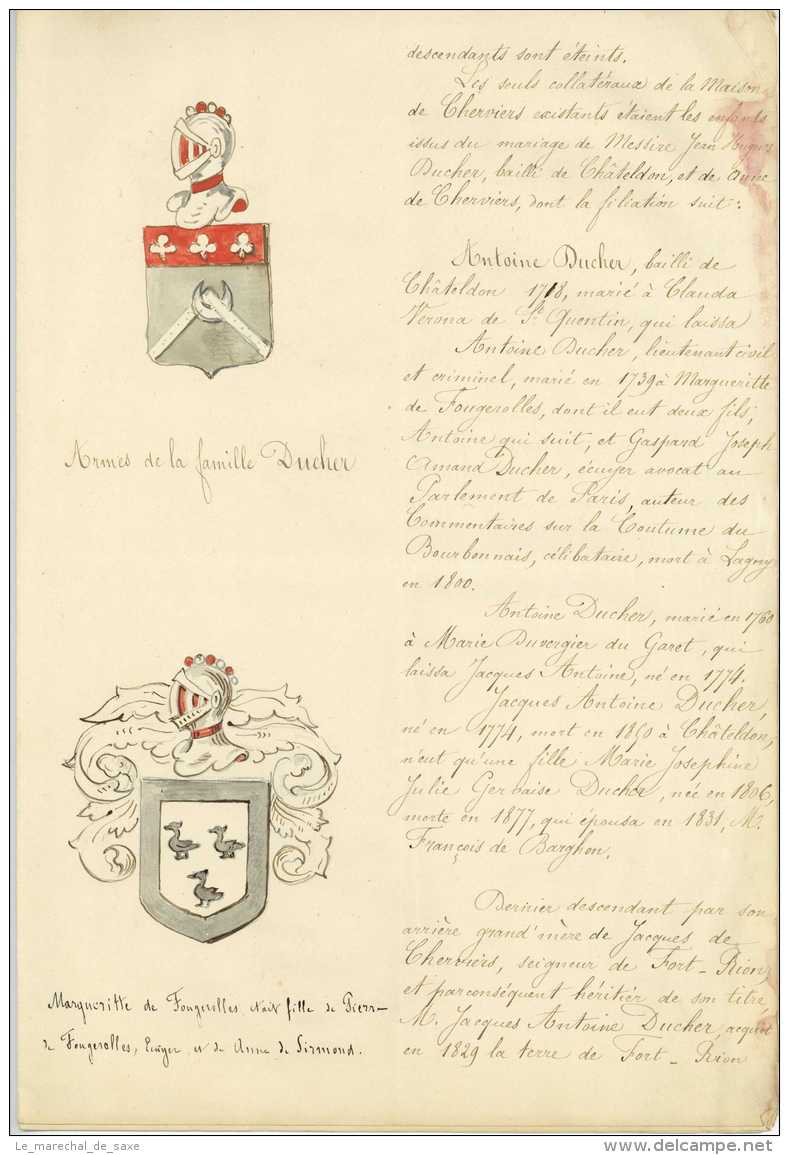 Armes de la famille Ducher
Margueritte de Fougerolles était fille de Pierre
de Fougerolles, Ecuyer et de Anne de Sirmond.
descendants sont éteints.
Les seuls collatéraux de la Maison
de Cherviers existants étaient les enfants
issus du mariage de Messire Jean Hugues
Ducher, bailli de Châteldon, et de Anne
de Cherviers, dont la filiation suit:
Antoine Ducher, bailli de
Châteldon 1718, marié à Clauda
Verona de St Quentin, qui laissa
Antoine Ducher, lieutenant civil
et criminel, marié en 1739 à Margueritte
de Fougerolles, dont il eut deux fils,
Antoine qui suit, et Gaspard Joseph
Amand Ducher, écuyer avocat au
Parlement de Paris, auteur des
Commentaires sur la Coutume du
Bourbonnais, célibataire, mort à Lagny
en 1800.
Antoine Ducher, marié en 1760
à Marie Duvergier du Garet, qui
laissa Jacques Antoine, né en 1774.
Jacques Antoine Ducher,
né en 1774, mort en 1850 à Châteldon,
n'eut qu'une fille Marie Josephine
Julie Gervaise Ducher, née en 1806,
morte en 1877, qui épousa en 1831, Mr.
François de Barghon.
Dernier descendant par son
arrière grand'mère de Jacques de
Cherviers, seigneur de Fort-Rion,
et parconséquent héritier de son titre
M. Jacques Antoine Ducher, acquit
en 1829 la terre de Fort-Rion
Le_marechal_de_saxe
delcampe.net